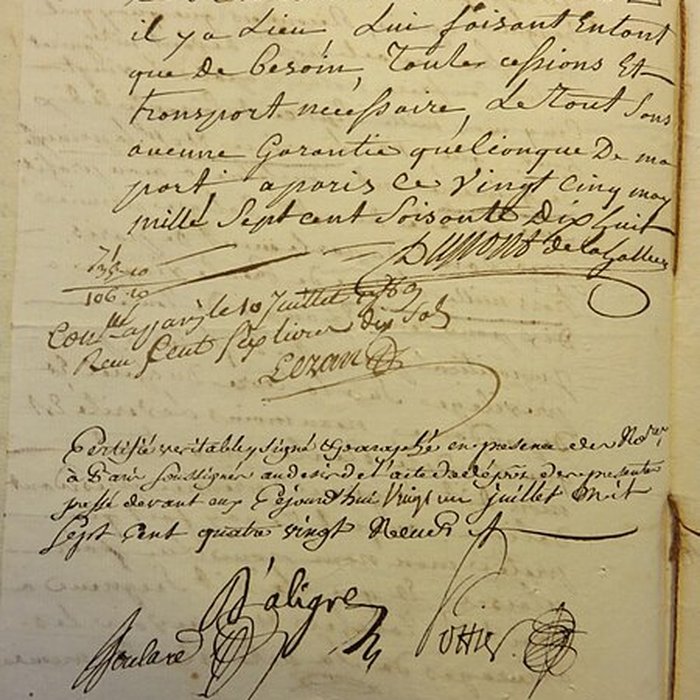 il y a Lieu, Lui faisant Entant
que De besoin, Toutes cessions Et
transport nécessaire, Le tout Sans
aucune Garantie quelconque De ma
part aparis ce Vingt Cinq may
mille Sept cent Soixante Dix huit
Dupont de la
71
35 10
106 10
Con.lle a paris le 10 Juillet 1789
Reçu Cent Six livres dix Sols
Lezan
Certifié veritable signé & paraphé en presence des No.res
à Paris soussignés au desir de l'acte de dépôt des presentes
passé devant eux Cejourd'hui Vingt un juillet Mil
Sept Cent quatre vingt Neuf
D'aligre
Goulard Pottier